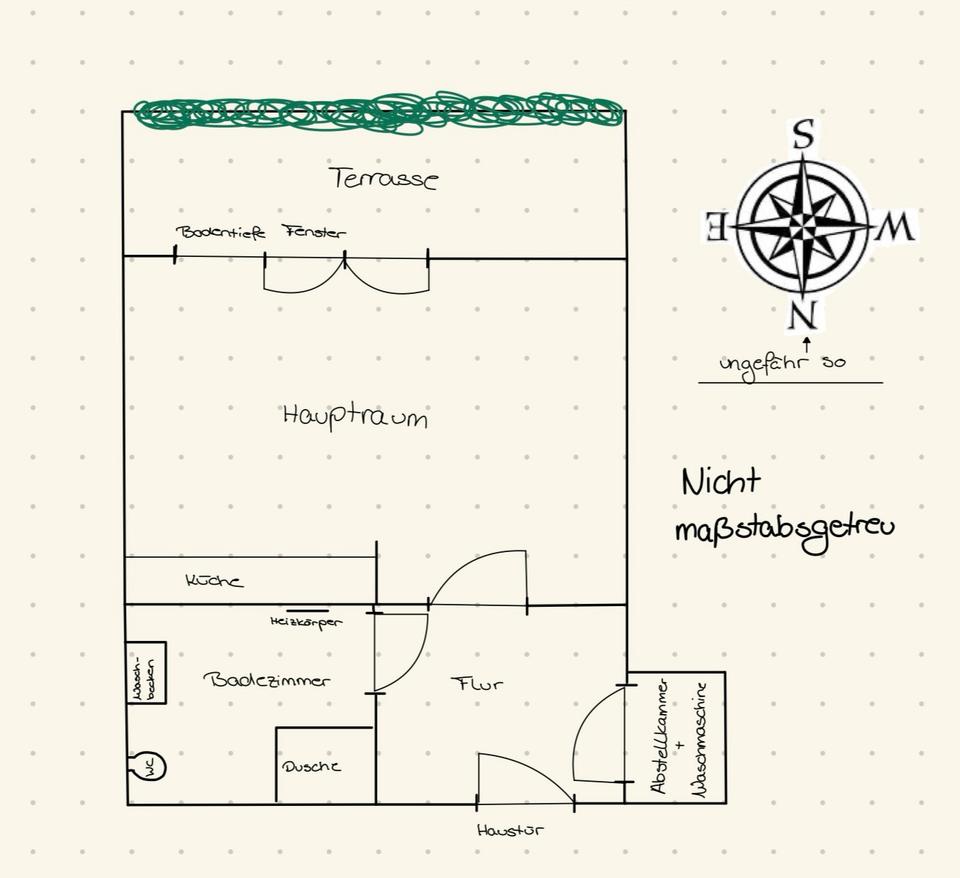 Terrasse
Bodentiefe Fenster
S
E
W
N
ungefähr so
Hauptraum
Nicht
maßstabsgetreu
Küche
Heizkörper
Wasch-
becken
Badezimmer
Flur
Abstellkammer
+
Waschmaschine
WC
Dusche
Haustür